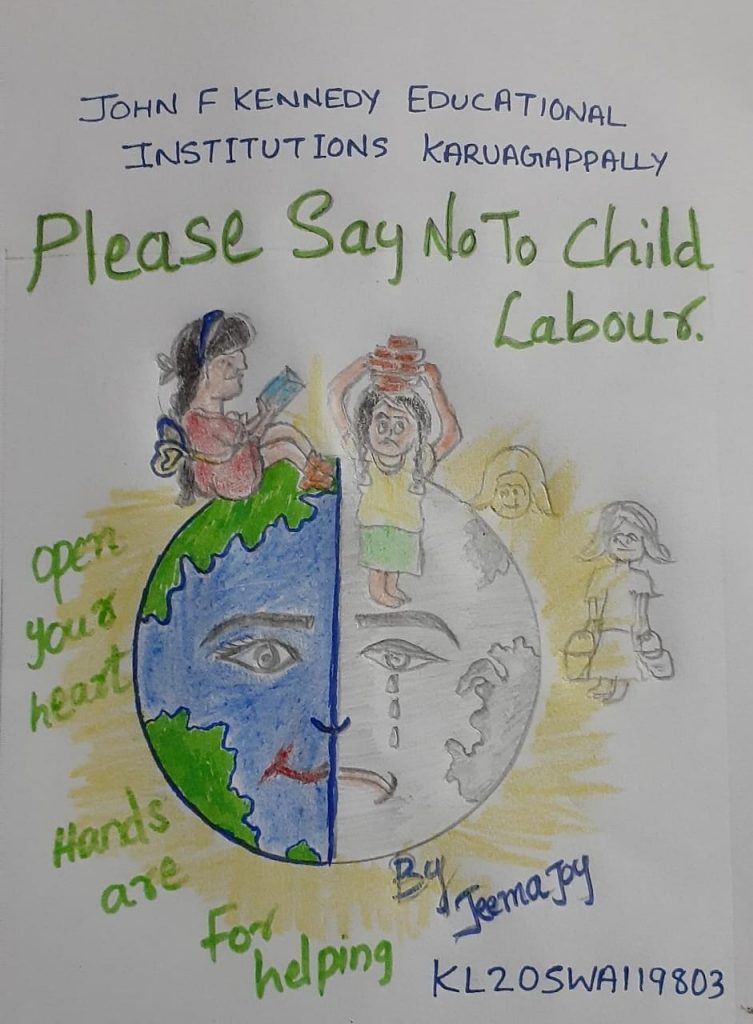 JOHN F KENNEDY EDUCATIONAL
INSTITUTIONS KARUAGAPPALLY
Please Say No To Child
Labour.
open
your
heart
Hands
are
For
helping
By
Jeema Joy
KL20SWA119803